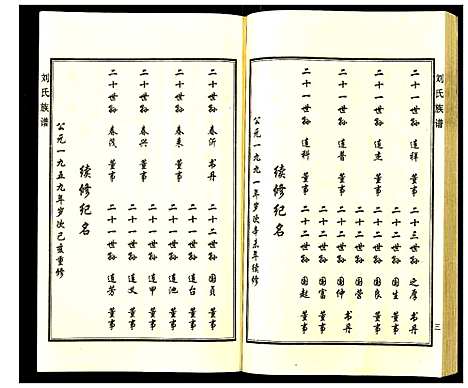 刘氏族谱
二十一世孙 道祥 董事
二十一世孙 道杰 董事
二十一世孙 道普 董事
二十一世孙 道科 董事
二十三世孙 之厚 书丹
二十二世孙 国生 董事
二十二世孙 国良 董事
二十二世孙 国营 董事
二十二世孙 国仲 书丹
二十二世孙 国富 董事
二十二世孙 国起 董事
续修纪名
公元一九九一年岁次辛未年续修
三
二十世孙 春沂 书丹
二十世孙 春来 董事
二十世孙 春兴 董事
二十世孙 春茂 董事
二十二世孙 国贞 董事
二十一世孙 道台 董事
二十一世孙 道池 董事
二十一世孙 道甲 董事
二十一世孙 道义 董事
二十一世孙 道芳 董事
续修纪名
公元一九五九年岁次己亥重修
刘氏族谱